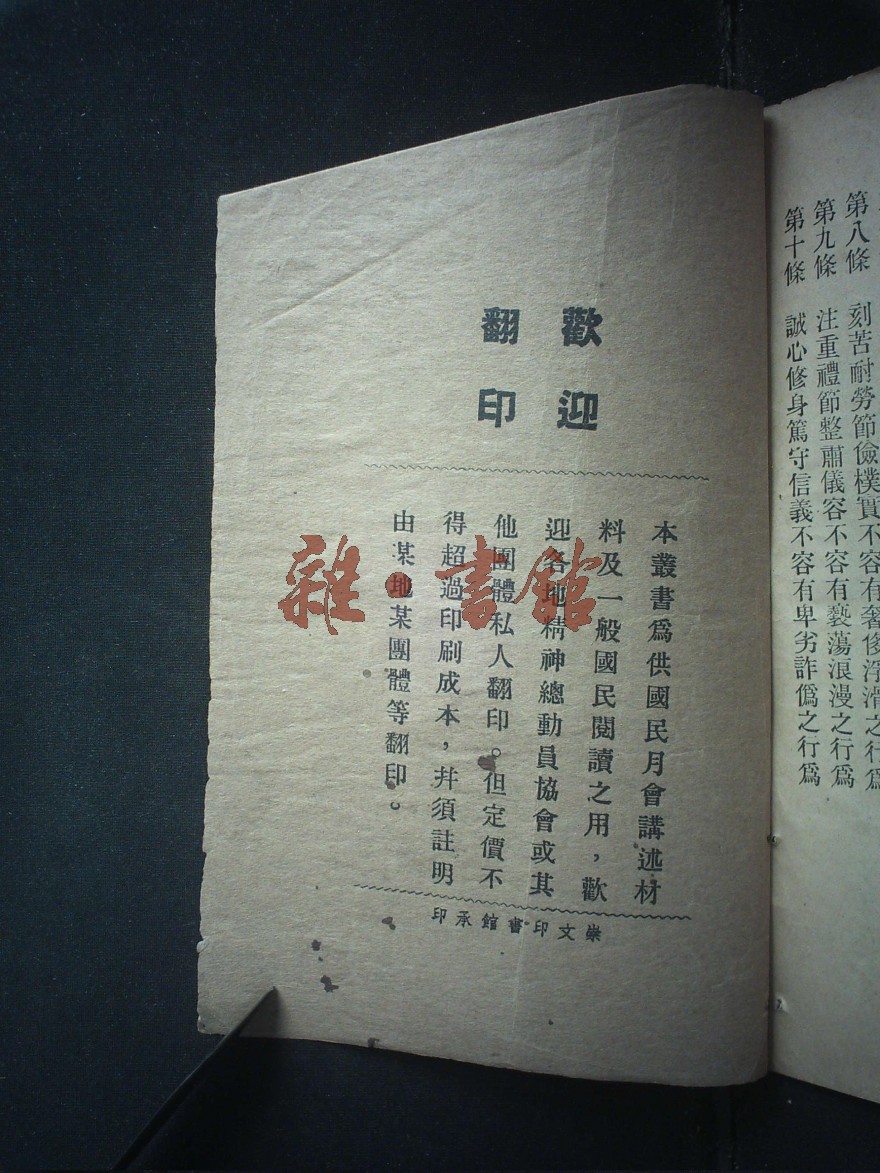 第八條 刻苦耐勞節儉樸實不容有奢侈浮滑之行為
第九條 注重禮節整肅儀容不容有褻蕩浪漫之行為
第十條 誠心修身篤守信義不容有卑劣詐偽之行為
歡迎
翻印
本叢書爲供國民月會講述材
料及一般國民閱讀之用，歡
迎各地精神總動員協會或其
他團體私人翻印。但定價不
得超過印刷成本，幷須註明
由某地某團體等翻印。
崇文印書館承印
雜·書館